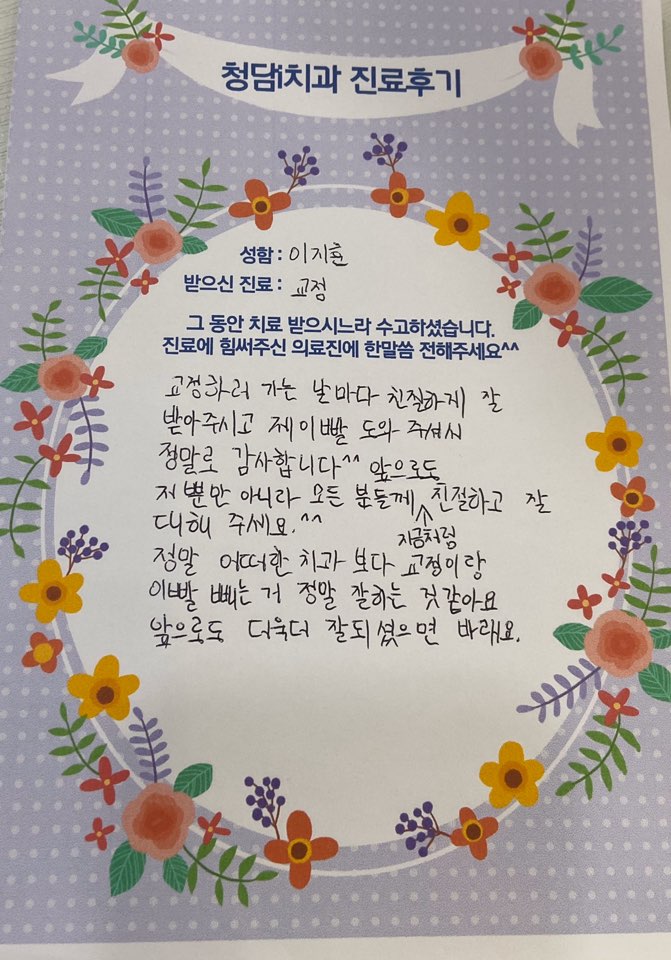 청담i치과 진료후기
성함 : 이지훈
받으신 진료 : 교정
그 동안 치료 받으시느라 수고하셨습니다.
진료에 힘써주신 의료진에 한말씀 전해주세요^^
교정하러 가는 날마다 친절하게 잘
받아주시고 제 이빨 도와 주셔서
정말로 감사합니다^^ 앞으로도
저 뿐만 아니라 모든 분들께 친절하고 잘
지금처럼
대해 주세요.^^
정말 어떠한 치과 보다 교정이랑
이빨 빼는 거 정말 잘하는 것 같아요
앞으로도 더욱더 잘되셨으면 바래요.